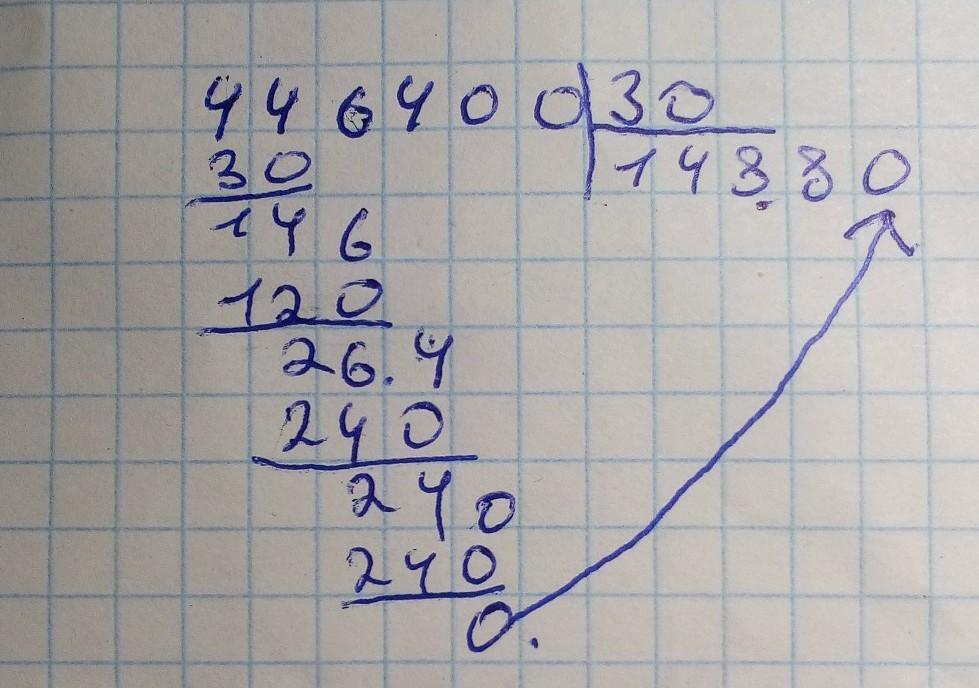 446400 30
30 14880
146
120
26.4
240
240
240
0.